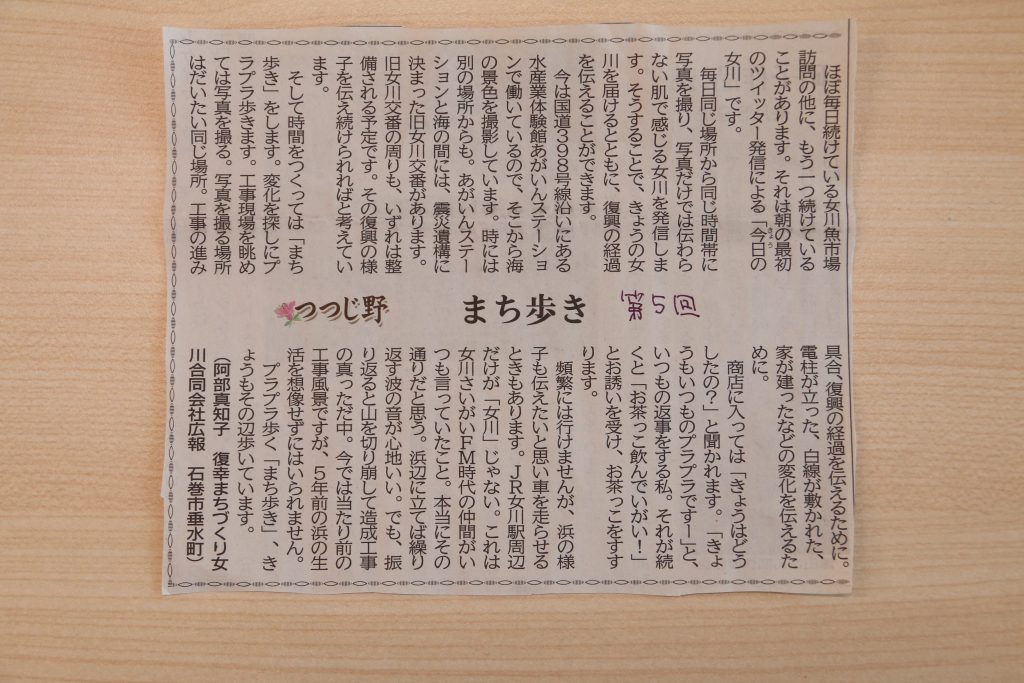 つつじ野
まち歩き
第5回
ほぼ毎日続けている女川魚市場
訪問の他に、もう一つ続けている
ことがあります。それは朝の最初
のツイッター発信による「今日の
きょう
女川」です。
毎日同じ場所から同じ時間帯に
写真を撮り、写真だけでは伝わら
ない肌で感じる女川を発信しま
す。そうすることで、きょうの女
川を届けるとともに、復興の経過
を伝えることができます。
今は国道398号線沿いにある
水産業体験館あがいんステーショ
ンで働いているので、そこから海
の景色を撮影しています。時には
別の場所からも。あがいんステー
ションと海の間には、震災遺構に
決まった旧女川交番があります。
旧女川交番の周りも、いずれは整
備される予定です。その復興の様
子を伝え続けられればと考えてい
ます。
そして時間をつくっては「まち
歩き」をします。変化を探しにプ
ラプラ歩きます。工事現場を眺め
ては写真を撮る。写真を撮る場所
はだいたい同じ場所。工事の進み
具合、復興の経過を伝えるために。
電柱が立った、白線が敷かれた、
家が建ったなどの変化を伝えるた
めに。
商店に入っては「きょうはどう
したの?」と聞かれます。「きょ
うもいつものプラプラですー」と、
いつもの返事をする私。それが続
くと「お茶っこ飲んでいがい!」
とお誘いを受け、お茶っこをすす
ります。
頻繁には行けませんが、浜の様
子も伝えたいと思い車を走らせる
ときもあります。JR女川駅周辺
だけが「女川」じゃない。これは
女川さいがいFM時代の仲間がい
つも言っていたこと。本当にその
通りだと思う。浜辺に立てば繰り
返す波の音が心地いい。でも、振
り返ると山を切り崩して造成工事
の真っただ中。今では当たり前の
工事風景ですが、5年前の浜の生
活を想像せずにはいられません。
プラプラ歩く「まち歩き」、き
ょうもその辺歩いています。
(阿部真知子 復幸まちづくり女
川合同会社広報 石巻市垂水町)